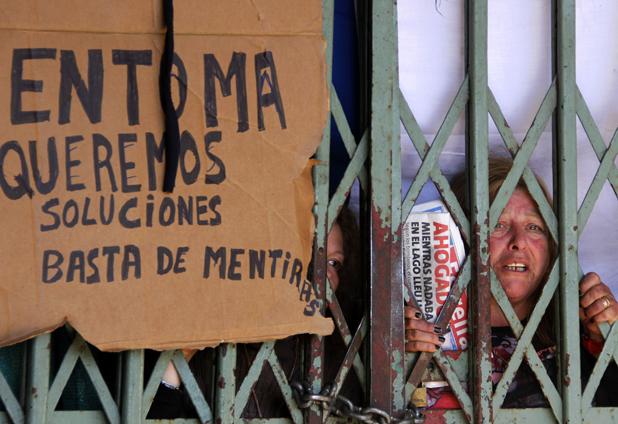 EN TOMA
QUEREMOS
SOLUCIONES
BASTA DE MENTIRAS
AHOGAD
MIENTRAS NADABA
EN EL LAGO LLEU